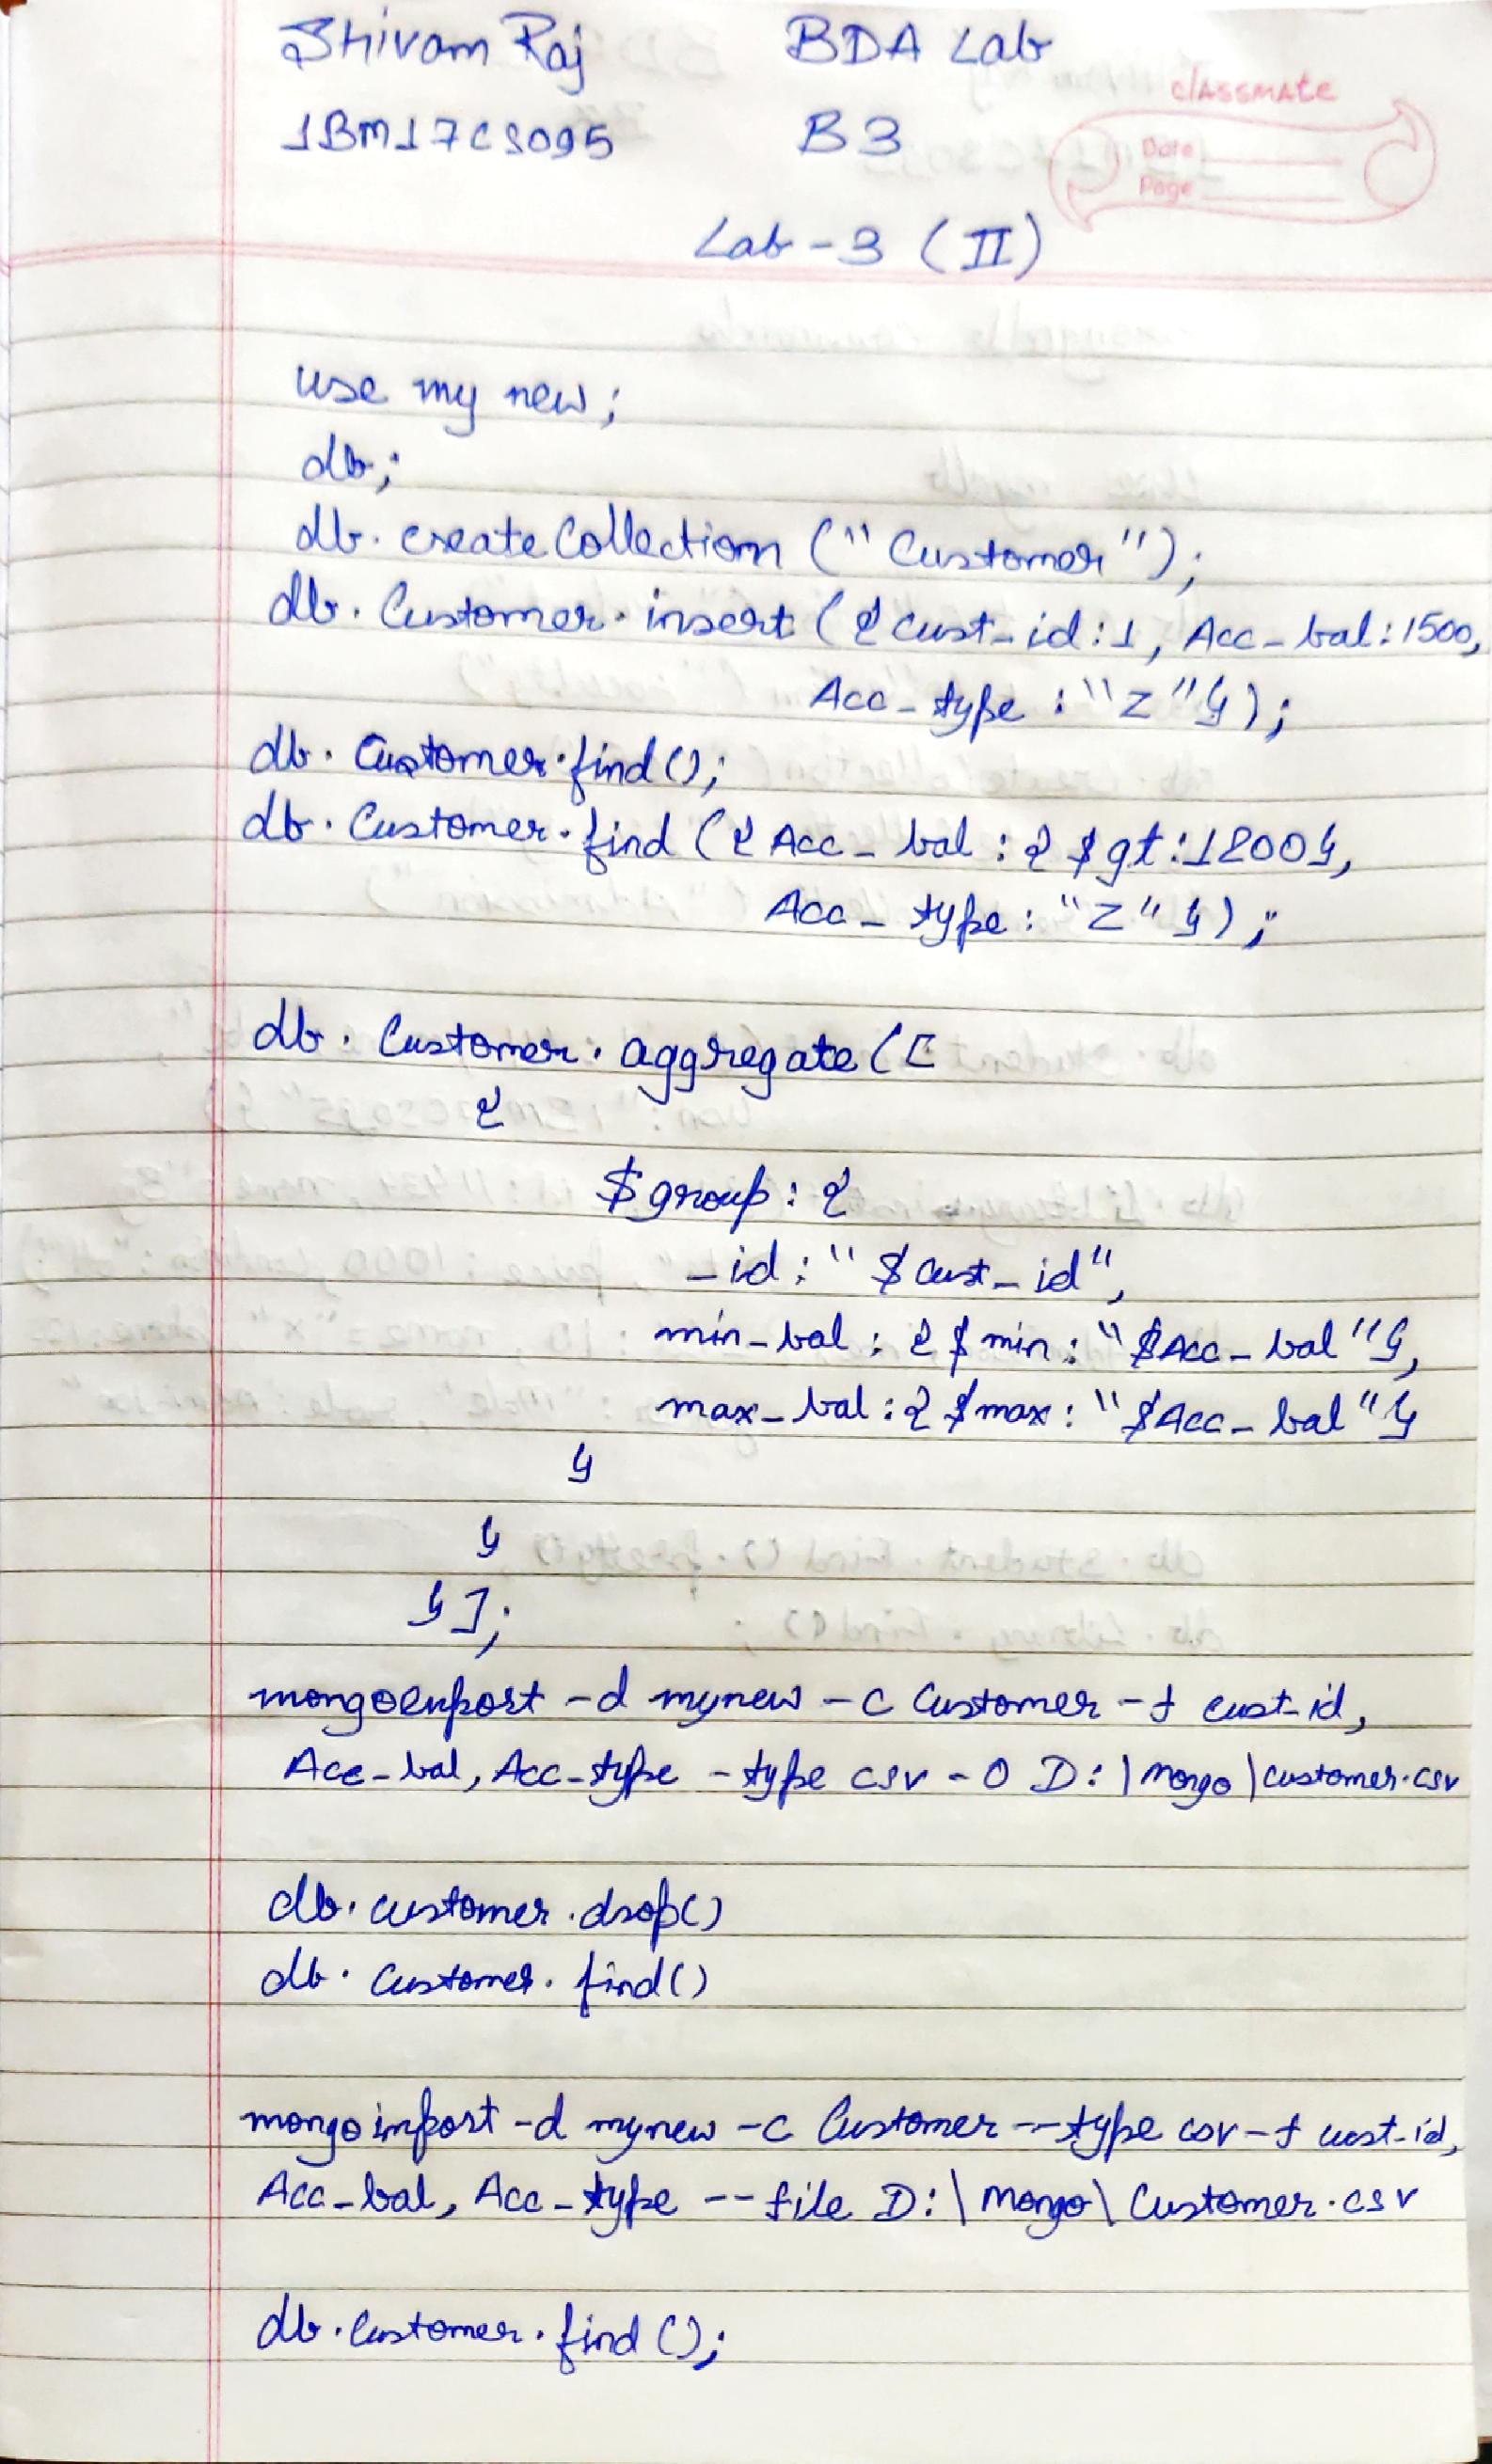 Shivam Raj BDA Lab
classmate
1BM17CS095 B3
Date
Page
Lab-3 (II)
use my new;
db;
db.createCollection("Customer");
db.Customer.insert({cust_id:1, Acc_bal:1500,
Acc_type:"Z"});
db.Customer.find();
db.Customer.find({Acc_bal:{$gt:1200},
Acc_type:"Z"});
db.Customer.aggregate([
{
$group:{
_id:"$cust_id",
min_bal:{$min:"$Acc_bal"},
max_bal:{$max:"$Acc_bal"}
}
}
}];
mongoexport -d mynew -c Customer -f cust_id,
Acc_bal, Acc_type -type csv -O D:\mongo\customer.csv
db.customer.drop()
db.customer.find()
mongoimport -d mynew -c Customer --type csv -f cust_id,
Acc_bal, Acc_type --file D:\mongo\Customer.csv
db.Customer.find();